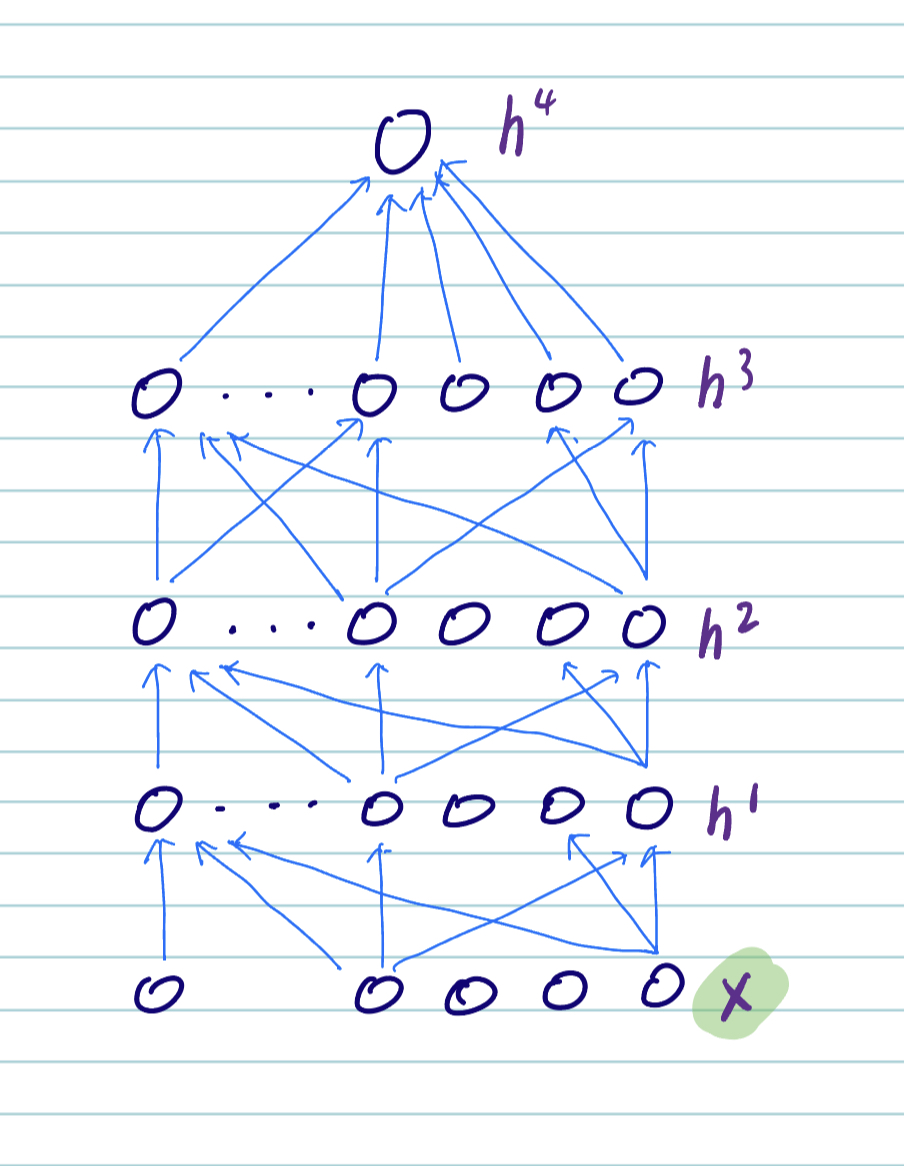 h⁴
. . .
h³
. . .
h²
. . .
h¹
x